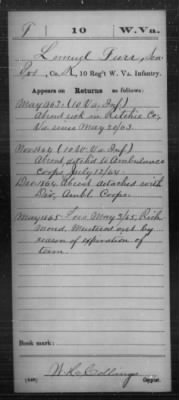 T 10 W.Va.
Lemuel
Pvt., Co. K, 10 Reg't W. Va. Infantry.
Appears on Returns as follows:
May 1863 (10 Va. Inf.)
Absent sick in Ritchie Co.
Va. since May 20/63.
Nov 1864 (10 W. Va. Inf.)
Absent detch'd to Ambulance
Corps July 12/64.
Dec 1864 Absent detached with
Div. Ambl. Corps.
May 1865 Loss May 2/65, Rich
mond. Mustered out by
reason of expiration of
term.
Book mark:
(546) Copyist.